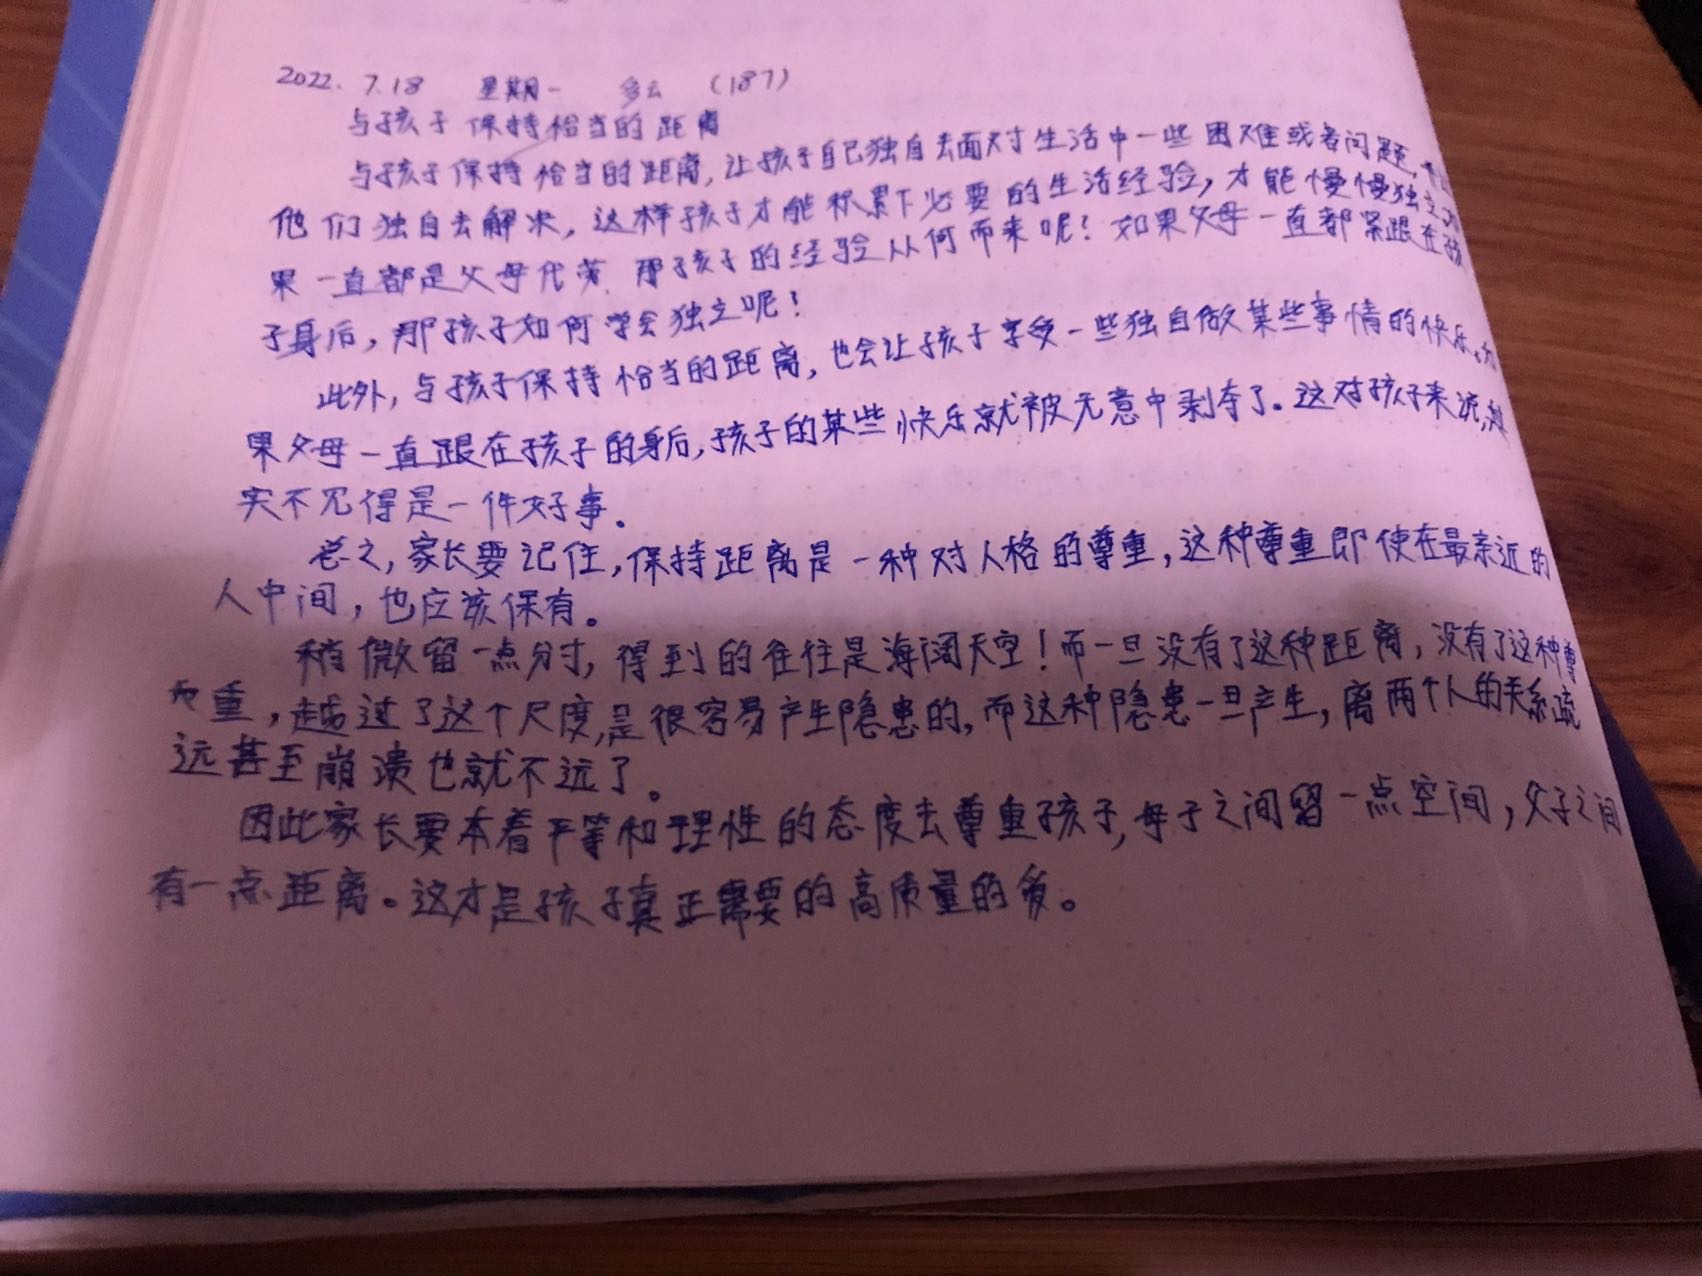 2022. 7.18 星期一 多云 (187)
与孩子保持恰当的距离
与孩子保持恰当的距离,让孩子自己独自去面对生活中一些困难或者问题,
他们独自去解决,这样孩子才能积累下必要的生活经验,才能慢慢独立,
果一直都是父母代劳,那孩子的经验从何而来呢?如果父母一直都紧跟在孩
子身后,那孩子如何学会独立呢!
此外,与孩子保持恰当的距离,也会让孩子享受一些独自做某些事情的快乐。
果父母一直跟在孩子的身后,孩子的某些快乐就被无意中剥夺了。这对孩子来说,其
实不见得是一件好事。
总之,家长要记住,保持距离是一种对人格的尊重,这种尊重即使在最亲近的
人中间,也应该保有。
稍微留一点分寸,得到的往往是海阔天空!而一旦没有了这种距离,没有了这种尊
重,越过了这个尺度,是很容易产生隐患的,而这种隐患一旦产生,离两个人的关系疏
远甚至崩溃也就不远了。
因此家长要本着平等和理性的态度去尊重孩子,母子之间留一点空间,父子之间
有一点距离。这才是孩子真正需要的高质量的爱。